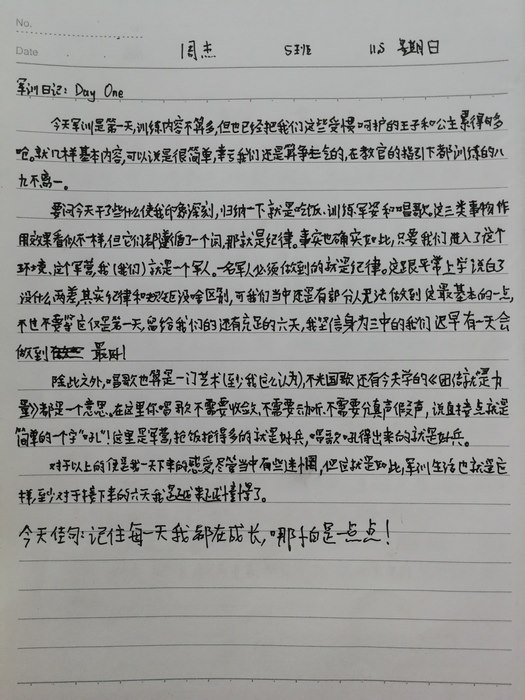 No.
Date 周杰 5班 11.5 星期日
军训日记: Day One
今天军训是第一天,训练内容不算多,但也已经把我们这些受惯呵护的王子和公主累得够
呛。就几样基本内容,可以说是很简单,幸亏我们还是算争气的,在教官的指引下都训练的八
九不离一。
要问今天干了些什么使我印象深刻,归纳一下就是吃饭、训练军姿和唱歌。这三类事物作
用效果看似不一样,但它们都遵循了一个词,那就是纪律。事实也确实如此,只要我们进入了这个
环境、这个军营,我(我们)就是一个军人。一名军人必须做到的就是纪律。这跟平常上学说白了
没什么两差,其实纪律和规矩没啥区别,可我们当中还是有部分人无法做到这最基本的一点,
不过不要紧这仅是第一天,留给我们的还有充足的六天,我坚信身为三中的我们迟早有一天会
做到 最好!
除此之外,唱歌也算是一门艺术(至少我这么认为),不光国歌还有今天学的《团结就是力
量》都是一个意思。在这里你唱歌不需要收敛,不需要动听,不需要分真声假声,说直接点就是
简单的一个字"吼"!这里是军营,抢饭抢得多的就是好兵,唱歌吼得出来的就是好兵。
对于以上的便是我一天下来的感受,尽管当中有些迷惘,但这就是如此,军训生活也就是这
样,至少对于接下来的六天我是越来越憧憬了。
今天佳句:记住每一天我都在成长,哪怕是一点点!